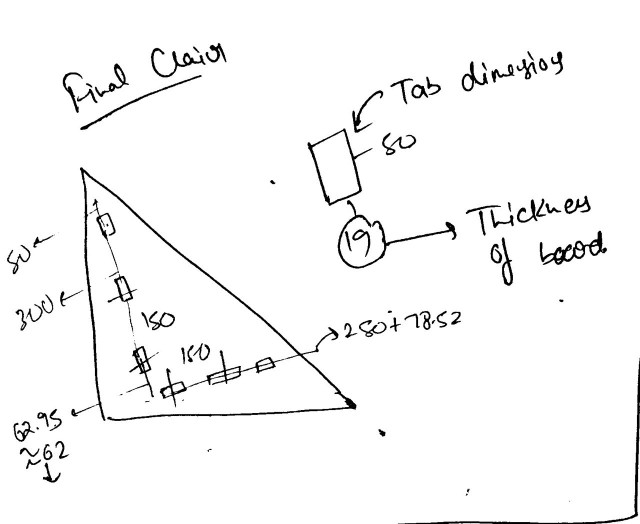 Final Chair
Tab dimesions
80
19
Thickness
of board
80
300
150
150
280+78.52
62.95
≈62